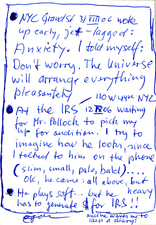 NYC Grand St 31 VIII 06 woke
up early, jet-lagged:
Anxiety. I told myself:
Don't worry. The Universe
will arrange everything
pleasantly
110 W 44th NYC
At the IRS 12 06 waiting
for Mr. Pollock to pick my
up for audition. I try to
imagine how he looks, since
I talked to him on the phone
(slim, small, pale, bald)....
Ok, he came: all above, but
heavy
He plays soft.. but he
has to generate $ for IRS !!
and he wants me to
keep a diary!